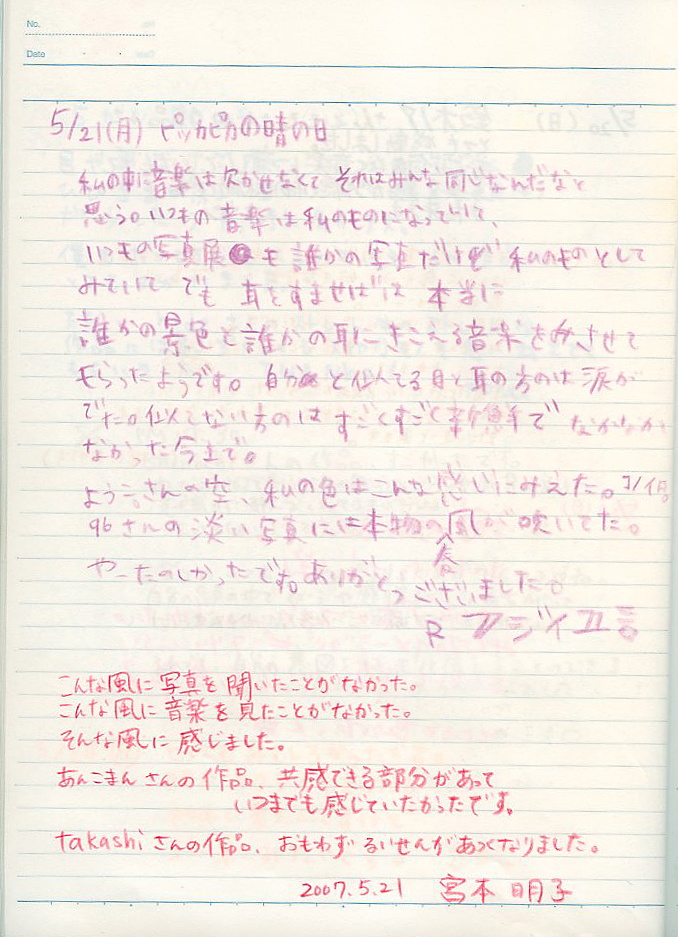 No.
Date
5/21(月) ピッカピカの晴の日
私の中に音楽は欠かせなくて それはみんな同じなんだなと
思う。いつもの音楽は私のものになっていて、
いつもの写真展も誰かの写真だけど 私のものとして
みていて でも 耳をすませばは 本当に
誰かの景色と誰かの耳にきこえる音楽をみさせて
もらったようです。自分と似てる目と耳の方のは涙が
でた。似てない方のは すごくすごく新鮮で なかなか
なかった今まで。
ようこさんの空、私の色はこんな感じにみえた。
96さんの淡い写真には本物の春風が吹いてた。
やーたのしかったです。ありがとうございました。
フジイユ
こんな風に写真を聞いたことがなかった。
こんな風に音楽を見たことがなかった。
そんな風に感じました。
あんこまんさんの作品、共感できる部分があって
いつまでも感じていたかったです。
takashiさんの作品、おもわずるいせんがあつくなりました。
2007.5.21 宮本明子